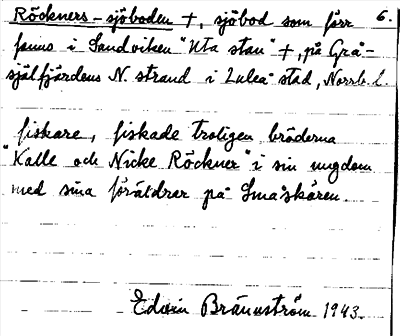 Röckners-sjöboden +, sjöbod som förr 6.
fanns i Sandviken "Uta stan" +, på Grå-
själfjärdens N. strand i Luleå stad, Norrb. l.
fiskare, fiskade troligen bröderna
"Kalle och Nicke Röckner" i sin ungdom
med sina föräldrer på Småskären.
Edvin Brännström 1943.